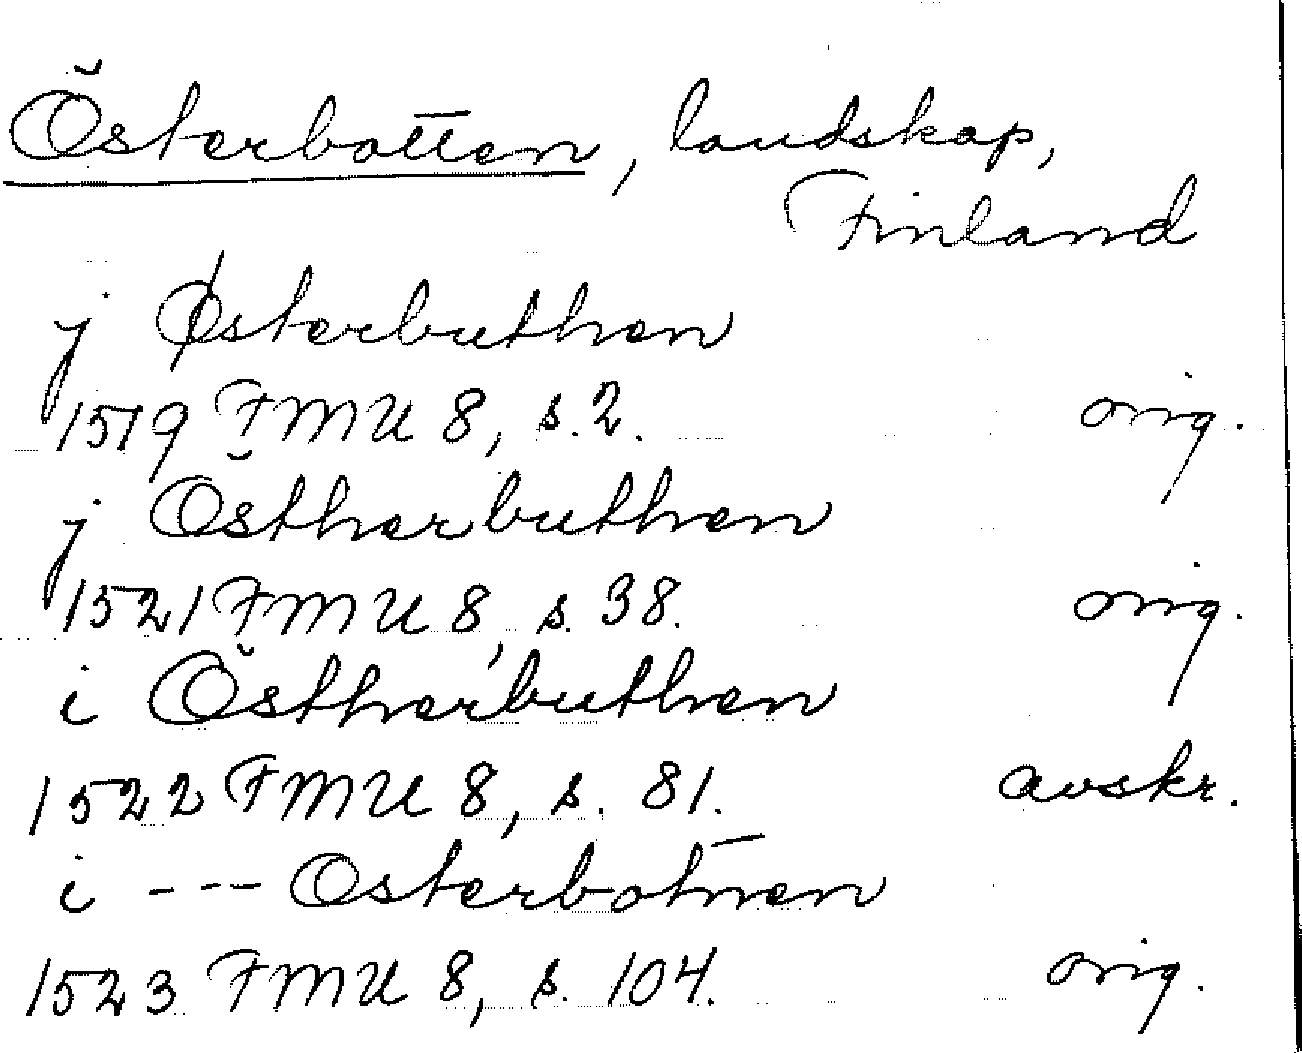 Österbotten, landskap,
Finland
j Østerbuthen
1519 FMU 8, s. 2. orig.
j Östherbuthen
1521 FMU 8, s. 38. orig.
i Östherbuthen
1522 FMU 8, s. 81. avskr.
i --- Osterbotnen
1523 FMU 8, s. 104. orig.